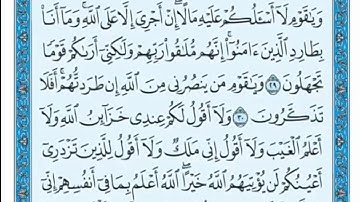 وَيَٰقَوۡمِ لَآ أَسۡـَٔلُكُمۡ عَلَيۡهِ مَالًاۖ إِنۡ أَجۡرِيَ إِلَّا عَلَى ٱللَّهِۚ وَمَآ أَنَا۠
بِطَارِدِ ٱلَّذِينَ ءَامَنُوٓاْۚ إِنَّهُم مُّلَٰقُواْ رَبِّهِمۡ وَلَٰكِنِّيٓ أَرَىٰكُمۡ قَوۡمٗا
تَجۡهَلُونَ ٢٩ وَيَٰقَوۡمِ مَن يَنصُرُنِي مِنَ ٱللَّهِ إِن طَرَدتُّهُمۡۚ أَفَلَا
تَذَكَّرُونَ ٣٠ وَلَآ أَقُولُ لَكُمۡ عِندِي خَزَآئِنُ ٱللَّهِ وَلَآ
أَعۡلَمُ ٱلۡغَيۡبَ وَلَآ أَقُولُ إِنِّي مَلَكٞ وَلَآ أَقُولُ لِلَّذِينَ تَزۡدَرِيٓ
أَعۡيُنُكُمۡ لَن يُؤۡتِيَهُمُ ٱللَّهُ خَيۡرًاۖ ٱللَّهُ أَعۡلَمُ بِمَا فِيٓ أَنفُسِهِمۡ إِنِّيٓ